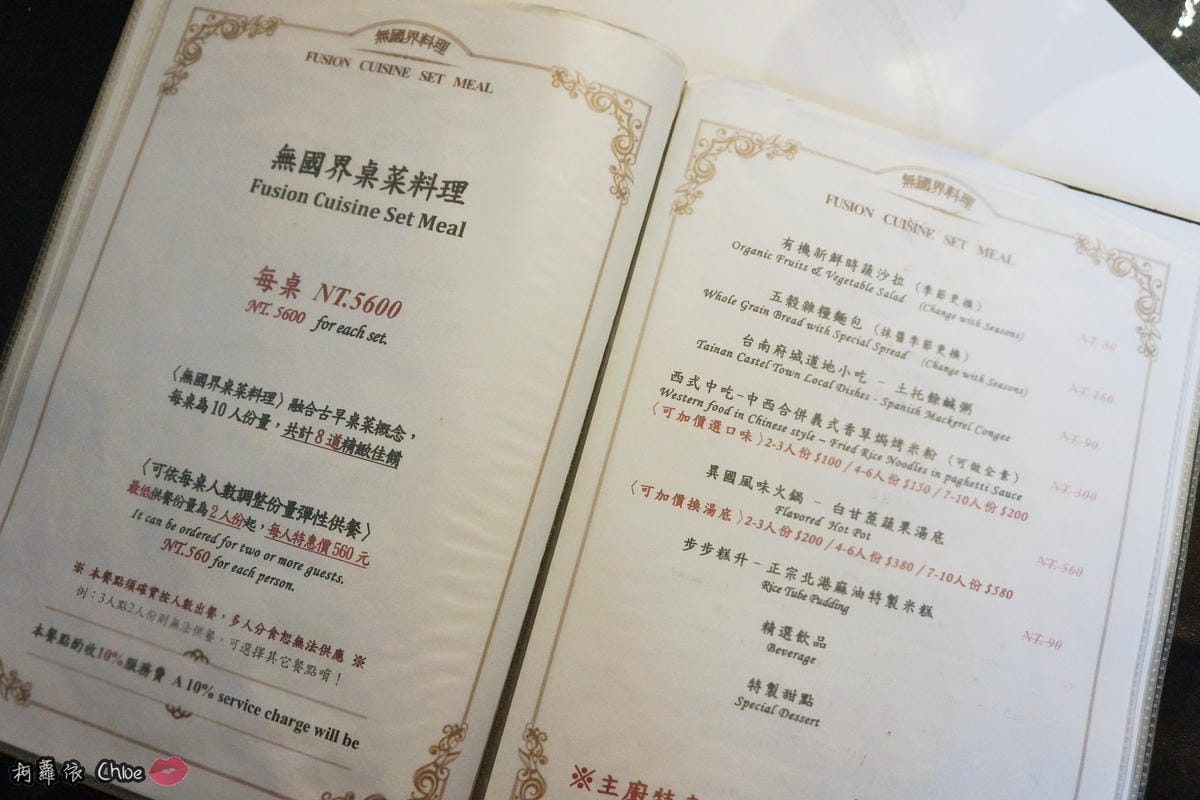 無國界料理
FUSION CUISINE SET MEAL
無國界桌菜料理
Fusion Cuisine Set Meal
每桌 NT.5600
NT. 5600 for each set.
〈無國界桌菜料理〉融合古早桌菜概念，
每桌為10人份量，共計8道精緻佳餚
〈可依每桌人數調整份量彈性供餐〉
最低供餐份量為2人份起，每人特惠價560元
It can be ordered for two or more guests.
NT.560 for each person.
※ 本餐點須確實按人數出餐，多人分食恕無法供應 ※
例：3人點2人份則無法供餐，可選擇其它餐點唷！
本餐點酌收10%服務費 A 10% service charge will be
無國界料理
FUSION CUISINE SET MEAL
有機新鮮時蔬沙拉（季節更換）
Organic Fruits & Vegetable Salad (Change with Seasons)
NT. 80
五穀雜糧麵包（抹醬季節更換）
Whole Grain Bread with Special Spread (Change with Seasons)
NT. 160
台南府城道地小吃 - 土托魚鹹粥
Tainan Castel Town Local Dishes - Spanish Mackerel Congee
NT. 90
西式中吃-中西合併義式香草焗烤米粉（可做全素）
Western food in Chinese style – Fried Rice Noodles in paghetti Sauce
NT. 300
〈可加價選口味〉2-3人份 $100 / 4-6人份 $150 / 7-10人份 $200
異國風味火鍋 - 白甘蔗蔬果湯底
Flavored Hot Pot
NT. 560
〈可加價換湯底〉2-3人份 $200 / 4-6人份 $380 / 7-10人份 $580
步步糕升 - 正宗北港麻油特製米糕
Rice Tube Pudding
NT. 90
精選飲品
Beverage
特製甜點
Special Dessert
※主廚特
柯蘿依 Chloe